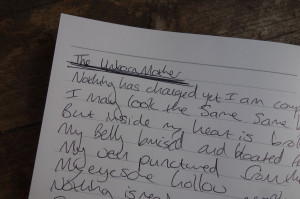 The Unborn Mother
Nothing has changed yet I am
I may look the same same
But inside my heart is
My Belly bruised and bloated
My veins punctured from
My eyes hollow
Nothing is